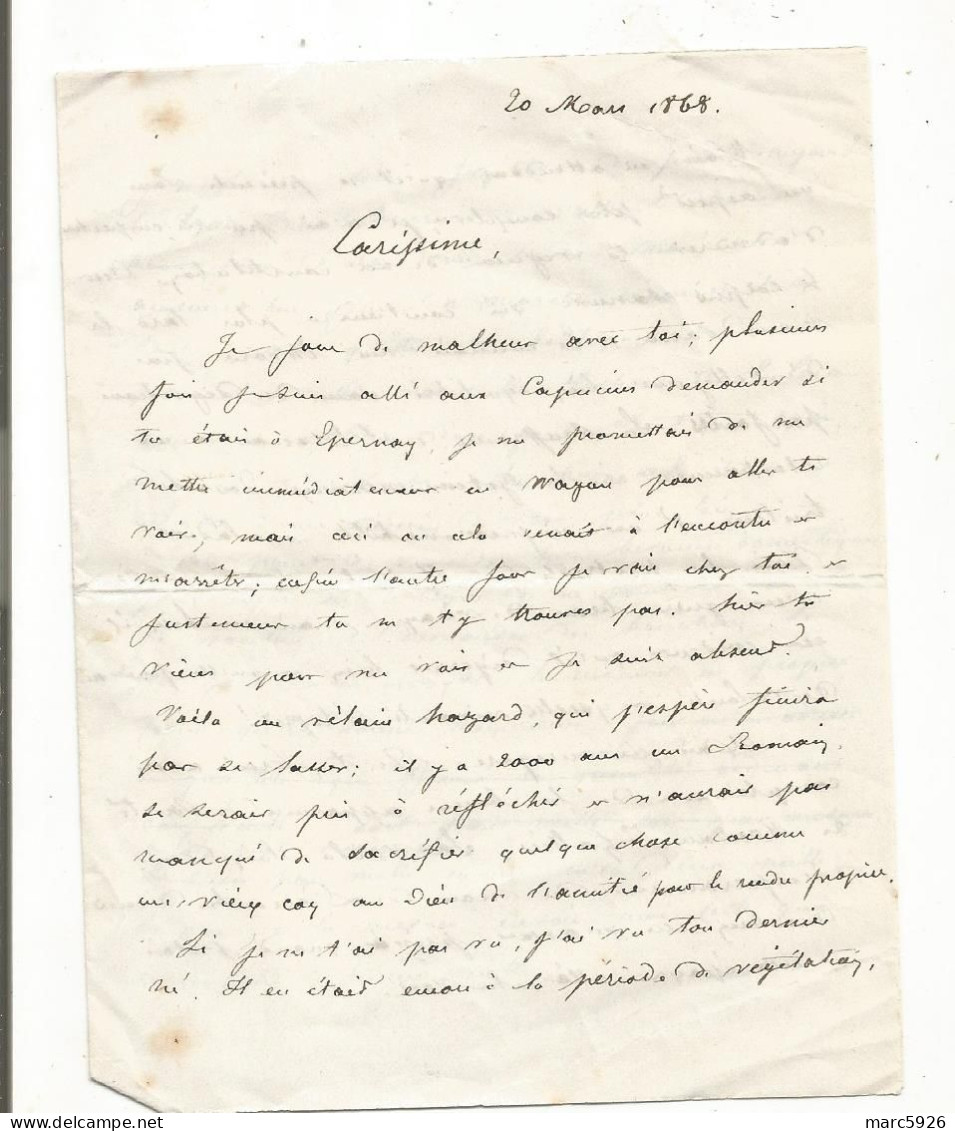 20 Mars 1868.
Carissime,
Je joue de malheur avec toi; plusieurs
fois je suis allé aux Capucins demander si
tu étais à Epernay, je me promettais de me
mettre immédiatement en wagon pour aller te
voir, mais ceci ou cela venait à l'encontre et
m'arrêter; enfin l'autre jour je vais chez toi et
justement tu ne t'y trouves pas. hier tu
viens pour me voir et je suis absent.
Voilà un vilain hazard, qui j'espère finira
par se lasser; il y a 2000 ans un Romain
se serait pris à réfléchir et n'aurait pas
manqué de sacrifier quelque chose comme
un vieux coq au Dieu de l'amitié pour le rendre propice.
Si je ne t'ai pas vu, j'ai vu ton dernier
né. Il en était encore à la période de végétation,
marc5926
delcampe.net